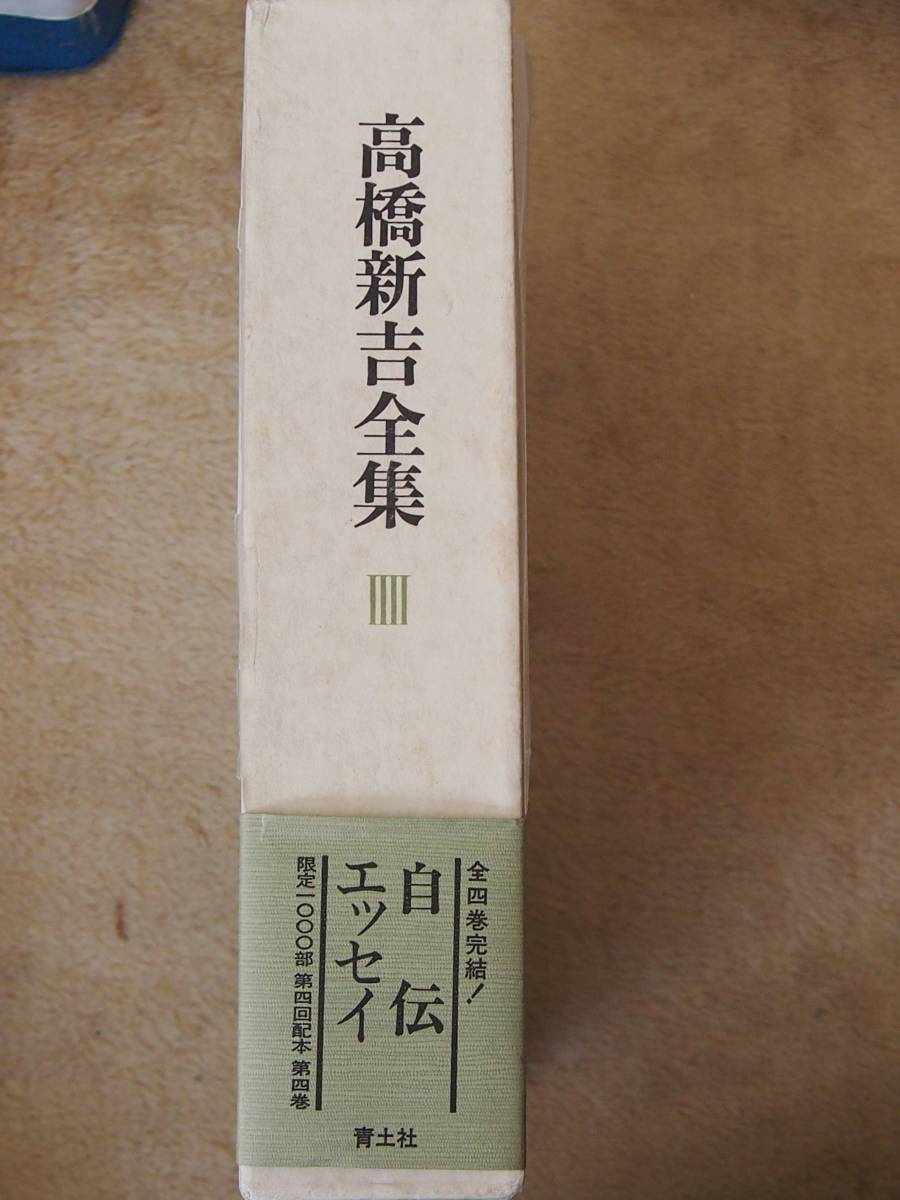 高橋新吉全集
IIII
全四巻完結!
自伝
エッセイ
限定一〇〇〇部 第四回配本 第四巻
青土社